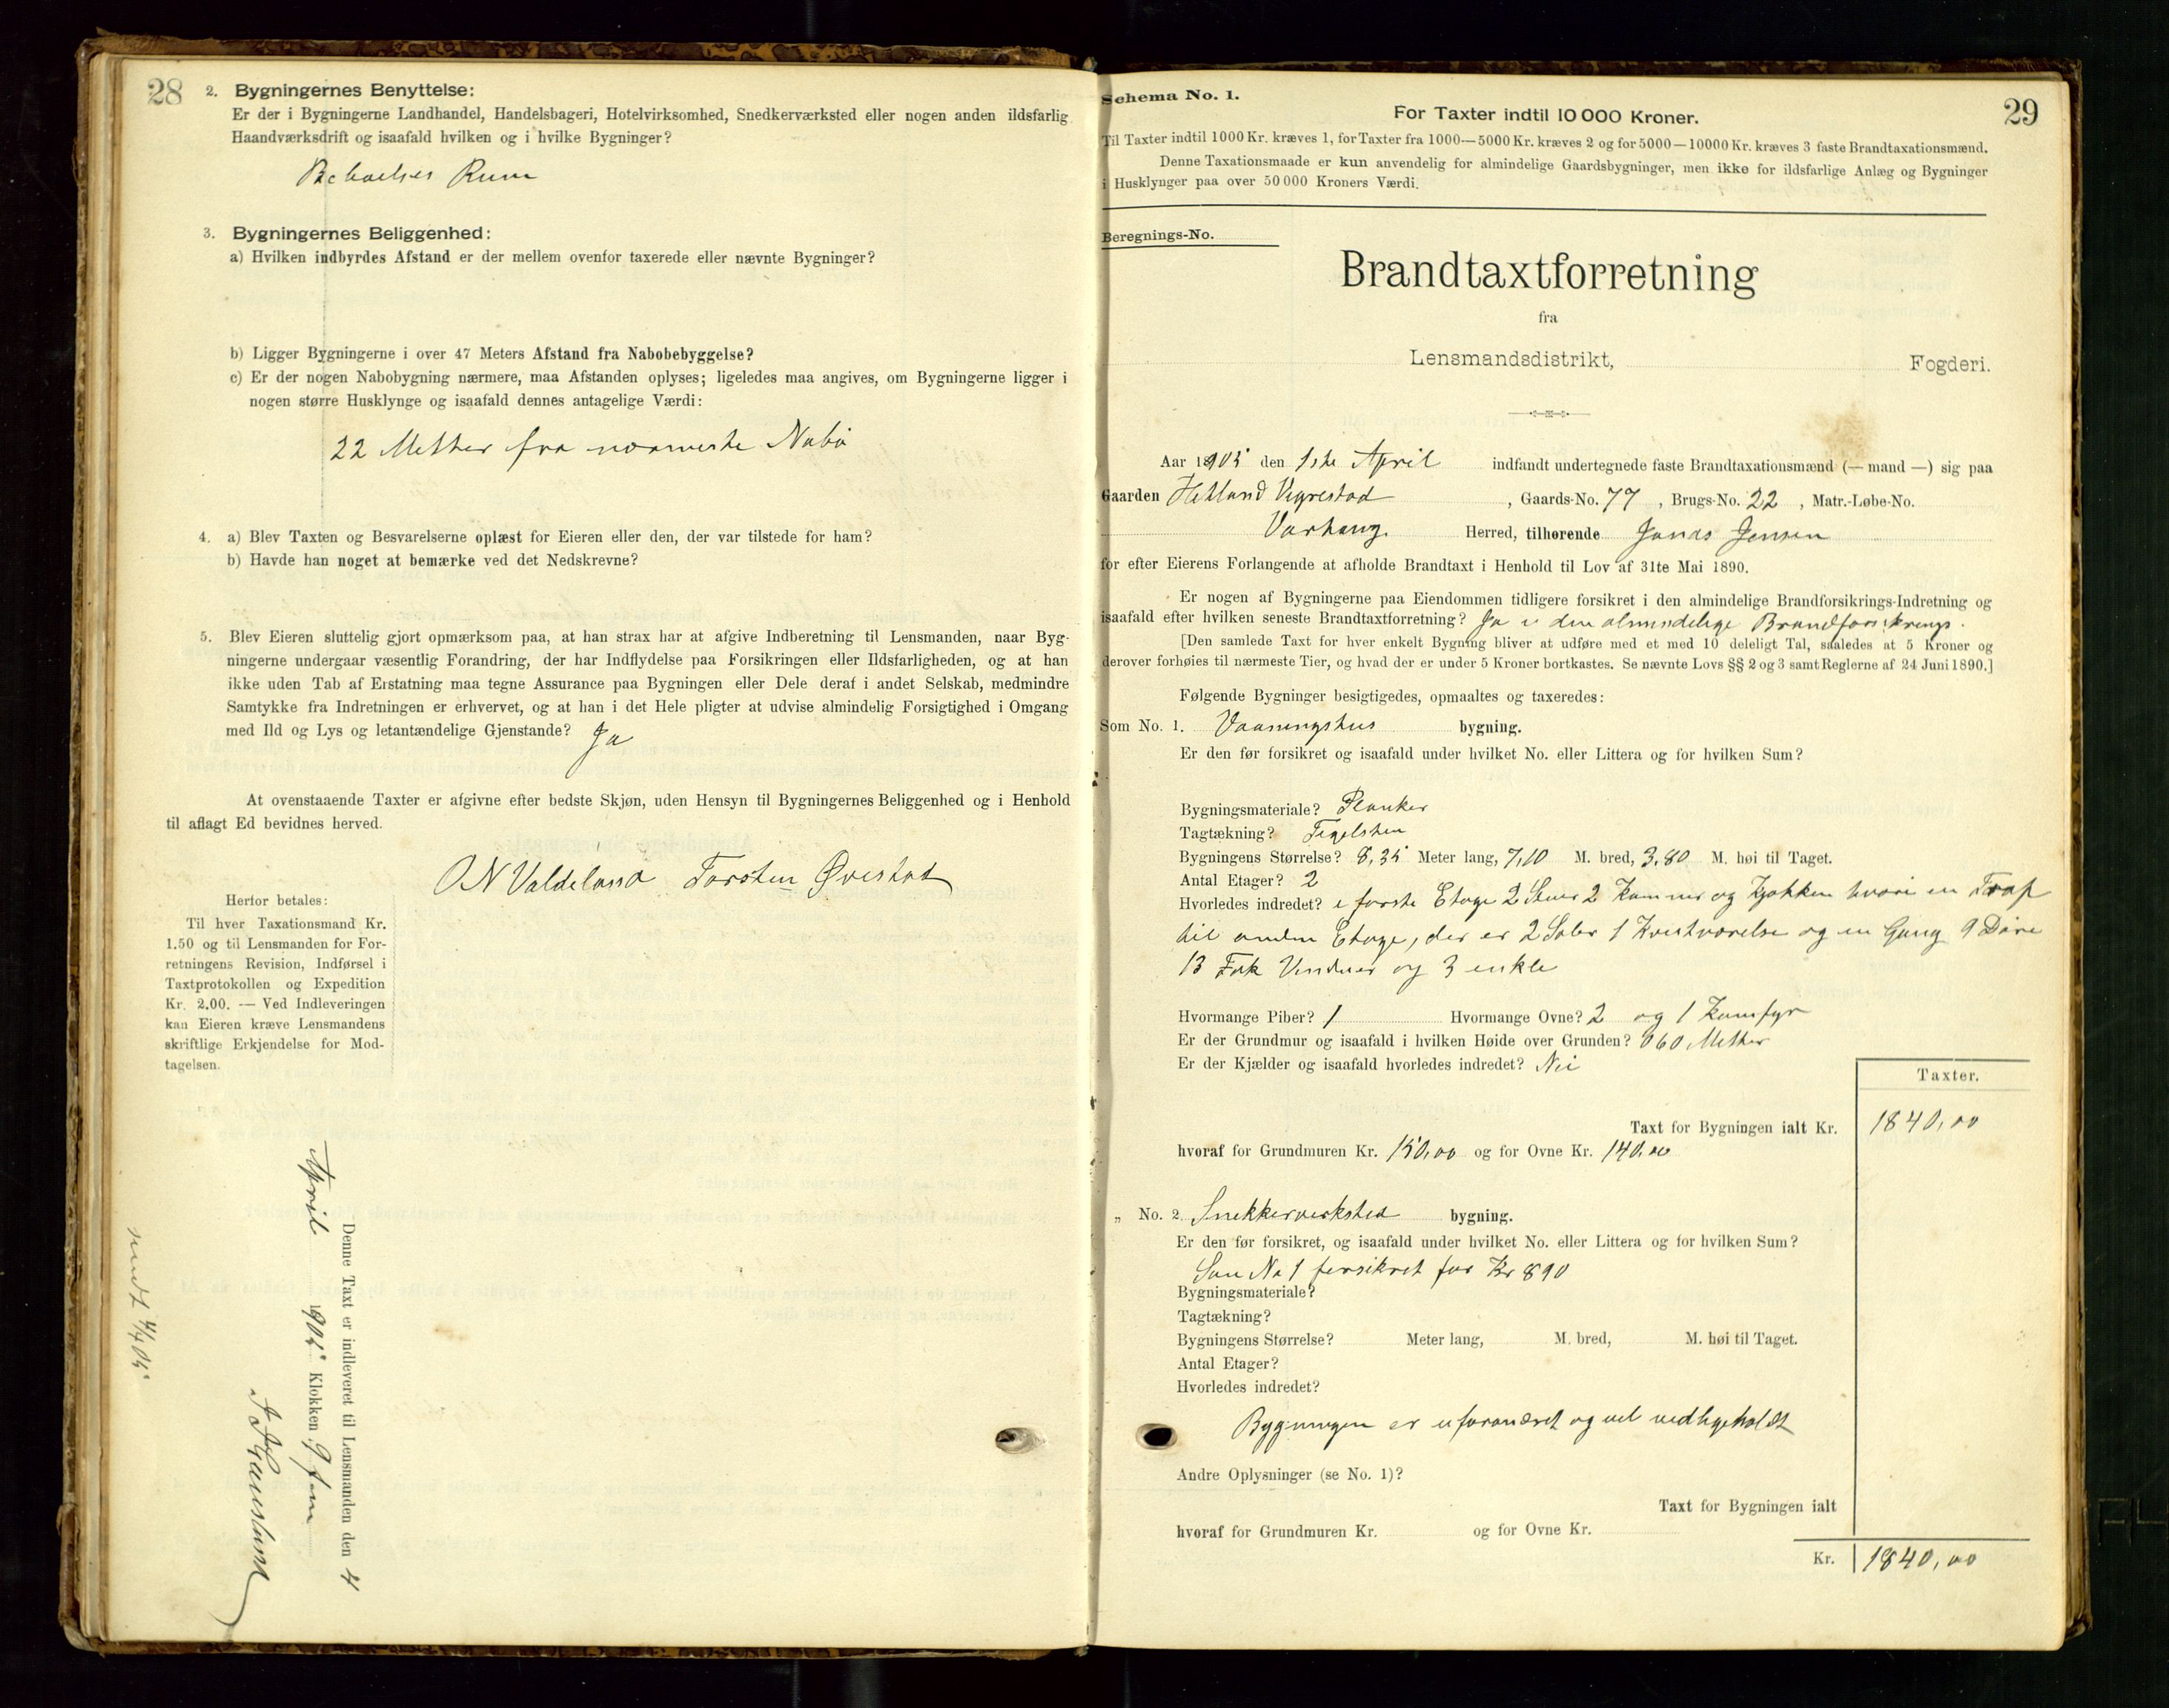 28
2. Bygningernes Benyttelse:
Er der i Bygningerne Landhandel, Handelsbageri, Hotelvirksomhed, Snedkerværksted eller nogen anden ildsfarlig
Haandværksdrift og isaafald hvilken og i hvilke Bygninger?
Beboelses Rum
3. Bygningernes Beliggenhed:
a) Hvilken indbyrdes Afstand er der mellem ovenfor taxerede eller nævnte Bygninger?
b) Ligger Bygningerne i over 47 Meters Afstand fra Nabobebyggelse?
c) Er der nogen Nabobygning nærmere, maa Afstanden oplyses; ligeledes maa angives, om Bygningerne ligger i
nogen større Husklynge og isaafald dennes antagelige Værdi:
22 Metter fra nærmeste Nabo
4. a) Blev Taxten og Besvarelserne oplæst for Eieren eller den, der var tilstede for ham?
b) Havde han noget at bemærke ved det Nedskrevne?
5. Blev Eieren sluttelig gjort opmærksom paa, at han strax har at afgive Indberetning til Lensmanden, naar Byg-
ningerne undergaar væsentlig Forandring, der har Indflydelse paa Forsikringen eller Ildsfarligheden, og at han
ikke uden Tab af Erstatning maa tegne Assurance paa Bygningen eller Dele deraf i andet Selskab, medmindre
Samtykke fra Indretningen er erhvervet, og at han i det Hele pligter at udvise almindelig Forsigtighed i Omgang
med Ild og Lys og letantændelige Gjenstande? Ja
At ovenstaaende Taxter er afgivne efter bedste Skjøn, uden Hensyn til Bygningernes Beliggenhed og i Henhold
til aflagt Ed bevidnes herved.
O N Valdeland Torsten Øvestad
Herfor betales:
Til hver Taxationsmand Kr.
1.50 og til Lensmanden for For-
retningens Revision, Indførsel i
Taxtprotokollen og Expedition
Kr. 2.00. — Ved Indleveringen
kan Eieren kræve Lensmandens
skriftlige Erkjendelse for Mod-
tagelsen.
Denne Taxt er indleveret til Lensmanden den 4
April 1905 Klokken 9 fm
sendt 4/4 05
Schema No. 1.
29
For Taxter indtil 10 000 Kroner.
Til Taxter indtil 1000 Kr. kræves 1, for Taxter fra 1000—5000 Kr. kræves 2 og for 5000—10000 Kr. kræves 3 faste Brandtaxationsmænd.
Denne Taxationsmaade er kun anvendelig for almindelige Gaardsbygninger, men ikke for ildsfarlige Anlæg og Bygninger
i Husklynger paa over 50 000 Kroners Værdi.
Beregnings-No.
Brandtaxtforretning
fra
Lensmandsdistrikt, Fogderi.
Aar 1905 den 1ste April indfandt undertegnede faste Brandtaxationsmænd (— mand —) sig paa
Gaarden Hetland Vigrestad, Gaards-No. 77, Brugs-No. 22, Matr.-Løbe-No.
Varhaug Herred, tilhørende Jonas Jensen
for efter Eierens Forlangende at afholde Brandtaxt i Henhold til Lov af 31te Mai 1890.
Er nogen af Bygningerne paa Eiendommen tidligere forsikret i den almindelige Brandforsikrings-Indretning og
isaafald efter hvilken seneste Brandtaxtforretning? Ja i den almindelige Brandforsikrings.
[Den samlede Taxt for hver enkelt Bygning bliver at udføre med et med 10 deleligt Tal, saaledes at 5 Kroner og
derover forhøies til nærmeste Tier, og hvad der er under 5 Kroner bortkastes. Se nævnte Lovs §§ 2 og 3 samt Reglerne af 24 Juni 1890.]
Følgende Bygninger besigtigedes, opmaaltes og taxeredes:
Som No. 1. Vaaningshus bygning.
Er den før forsikret og isaafald under hvilket No. eller Littera og for hvilken Sum?
Bygningsmateriale? Planker
Tagtækning? Tegelsten
Bygningens Størrelse? 8,35 Meter lang, 7,10 M. bred, 3,80 M. høi til Taget.
Antal Etager? 2
Hvorledes indredet? i første Etage 2 Stuer 2 Kammer og Kjøkken hvori en Trap
til anden Etage, der er 2 Saler 1 Kvistværelse og en Gang 9 Døre
13 Fak Vinduer og 3 enkle
Hvormange Piber? 1 Hvormange Ovne? 2 og 1 Komfyr
Er der Grundmur og isaafald i hvilken Høide over Grunden? 0 60 Metter
Er der Kjælder og isaafald hvorledes indredet? Nei
Taxter.
Taxt for Bygningen ialt Kr. 1840,00
hvoraf for Grundmuren Kr. 150,00 og for Ovne Kr. 140,00
„ No. 2. Snekkerverksted bygning.
Er den før forsikret, og isaafald under hvilket No. eller Littera og for hvilken Sum?
Som No 1 forsikret for Kr 890
Bygningsmateriale?
Tagtækning?
Bygningens Størrelse? Meter lang, M. bred, M. høi til Taget.
Antal Etager?
Hvorledes indredet?
Bygningen er uforandret og vel vedligeholdt
Andre Oplysninger (se No. 1)?
Taxt for Bygningen ialt
hvoraf for Grundmuren Kr. og for Ovne Kr.
Kr. 1840,00